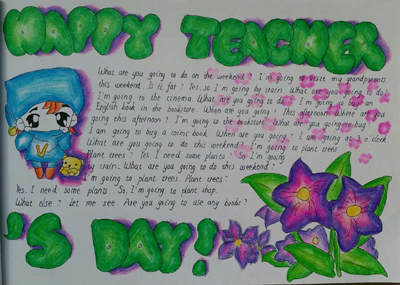 HAPPY TEACHER
What are you going to do on the weekend? I'm going to visit my grandparents
this weekend. Is it far? Yes, so I'm going by train. What are you going to do?
I'm going to the cinema. What are you going to do? I'm going to buy an
English book in the bookstore. When are you going? This afternoon. Where are you
going this afternoon? I'm going to the bookstore. What are you going to buy?
I am going to buy a comic book. When are you going? I am going at 2 o'clock
What are you going to do this weekend? I'm going to plant trees
Plant trees? Yes. I need some plants. So I'm going
by train. What are you going to do this weekend?
I'm going to plant trees. Plant trees?
Yes. I need some plants. So I'm going to plant shop.
What else? Let me see. Are you going to use any books?
'S DAY!